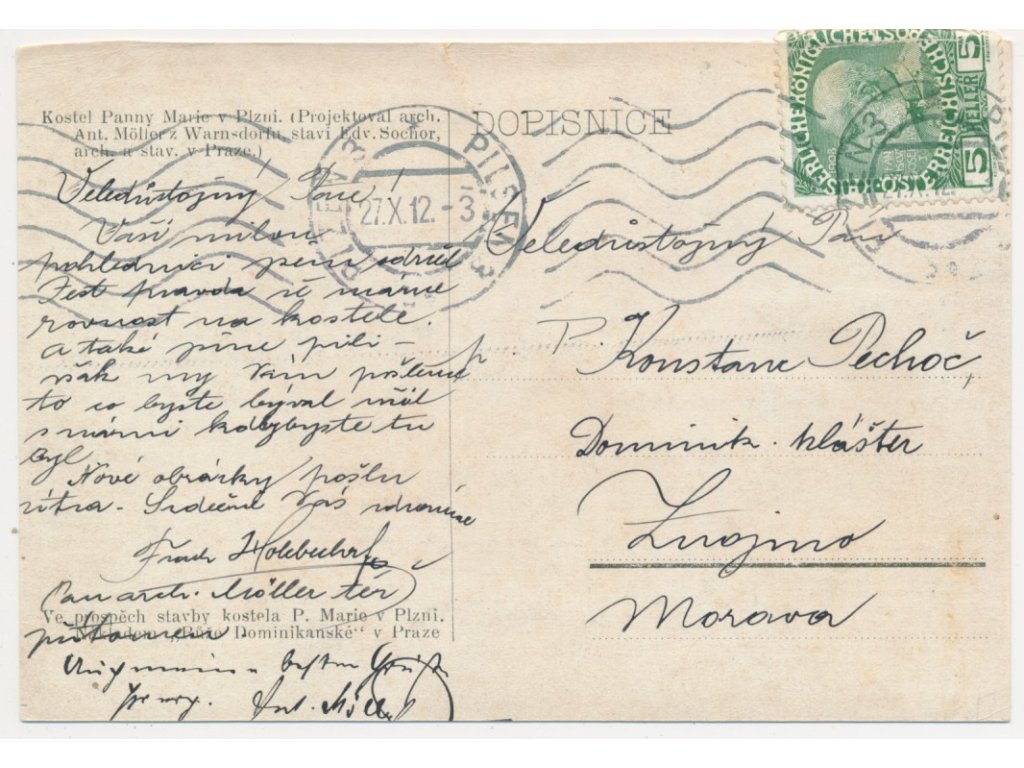 Kostel Panny Marie v Plzni. (Projektoval arch.
Ant. Möller z Warnsdorfu, staví Edv. Sochor,
arch. a stav. v Praze.)
DOPISNICE
KAISERLICHE KÖNIGLICHE ÖSTERREICHISCHE POST
5 HELLER 5
PILSEN 3
27.X.12.-3
PLZEŇ 3
Veledůstojný Pane!
Vaší milou
pohlednici jsem obdržel
Jest pravda se máme
rovnost na kostele.
a také píne pili -
však my Vám pošleme
to co byste býval měl
s námi kdybyste tu
byl
Nové obrázky pošlu
zítra. Srdečně Vás zdravíme
Pan arch. Möller též
přítomen.
Ant. Möller
Ve prospěch stavby kostela P. Marie v Plzni.
Nákladem „Růže Dominikanské" v Praze
Veledůstojný Pán
p. P. Konstanc Pechoč,
Dominik. klášter
Znojmo
Morava